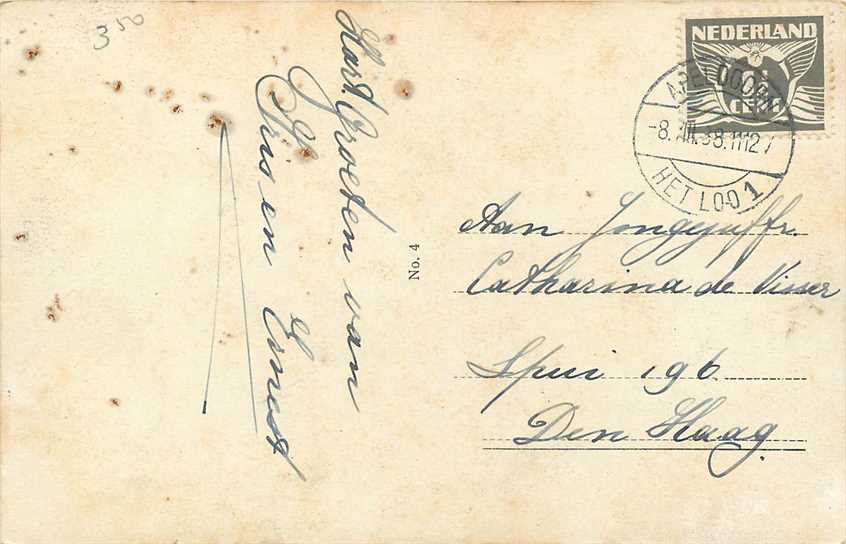 3 50
Hart. Groeten van
Gris en Ernest
No. 4
NEDERLAND
CENT
APELDOORN
-8.VIII.38.1112
HET LOO 1
Aan Jongejuffr.
Catharina de Visser
Spui 196
Den Haag